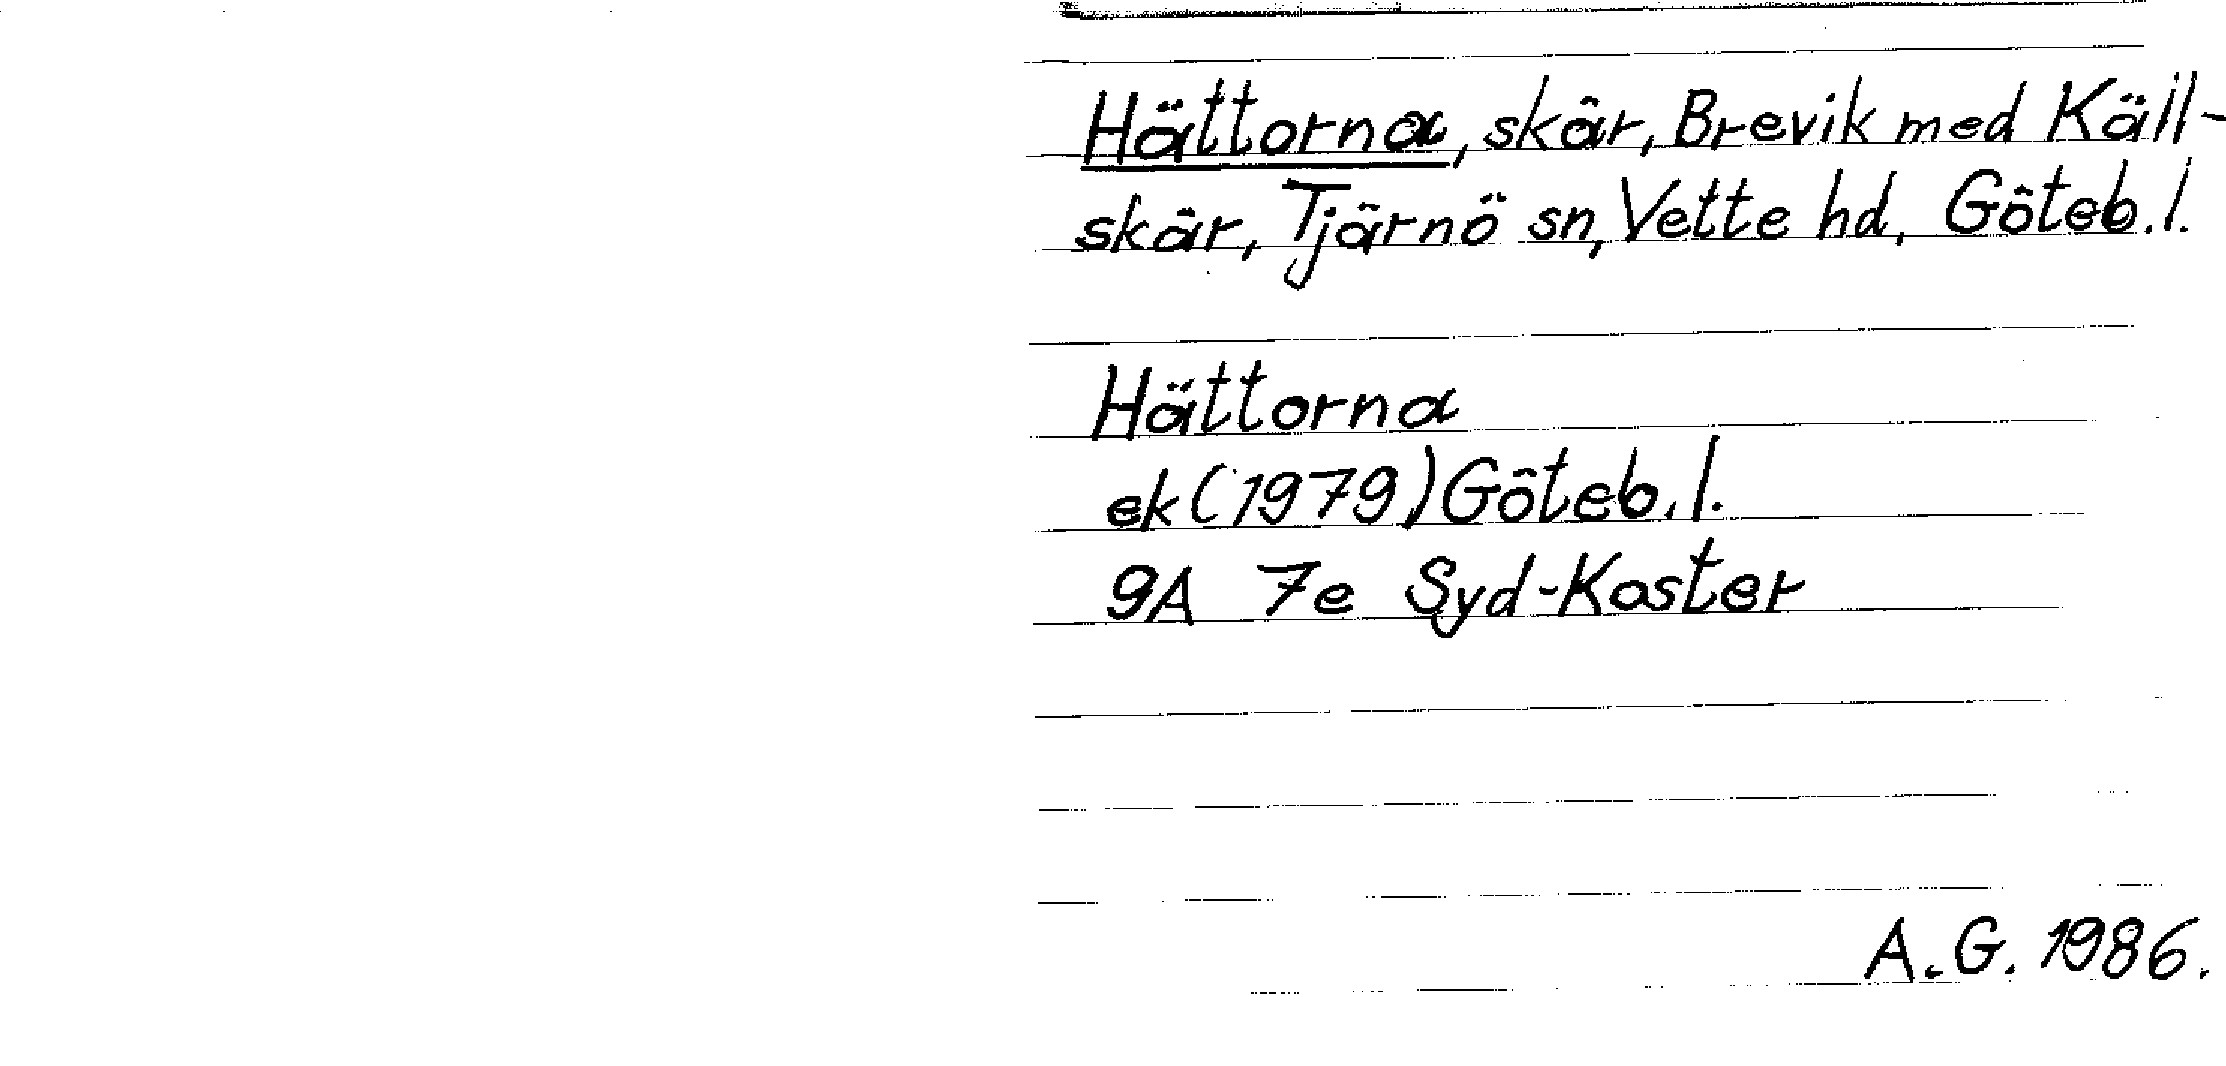 Hättorna, skär, Brevik med Käll-
skär, Tjärnö sn, Vette hd, Göteb. l.
Hättorna
ek (1979) Göteb. l.
9A 7e Syd-Koster
A.G. 1986.